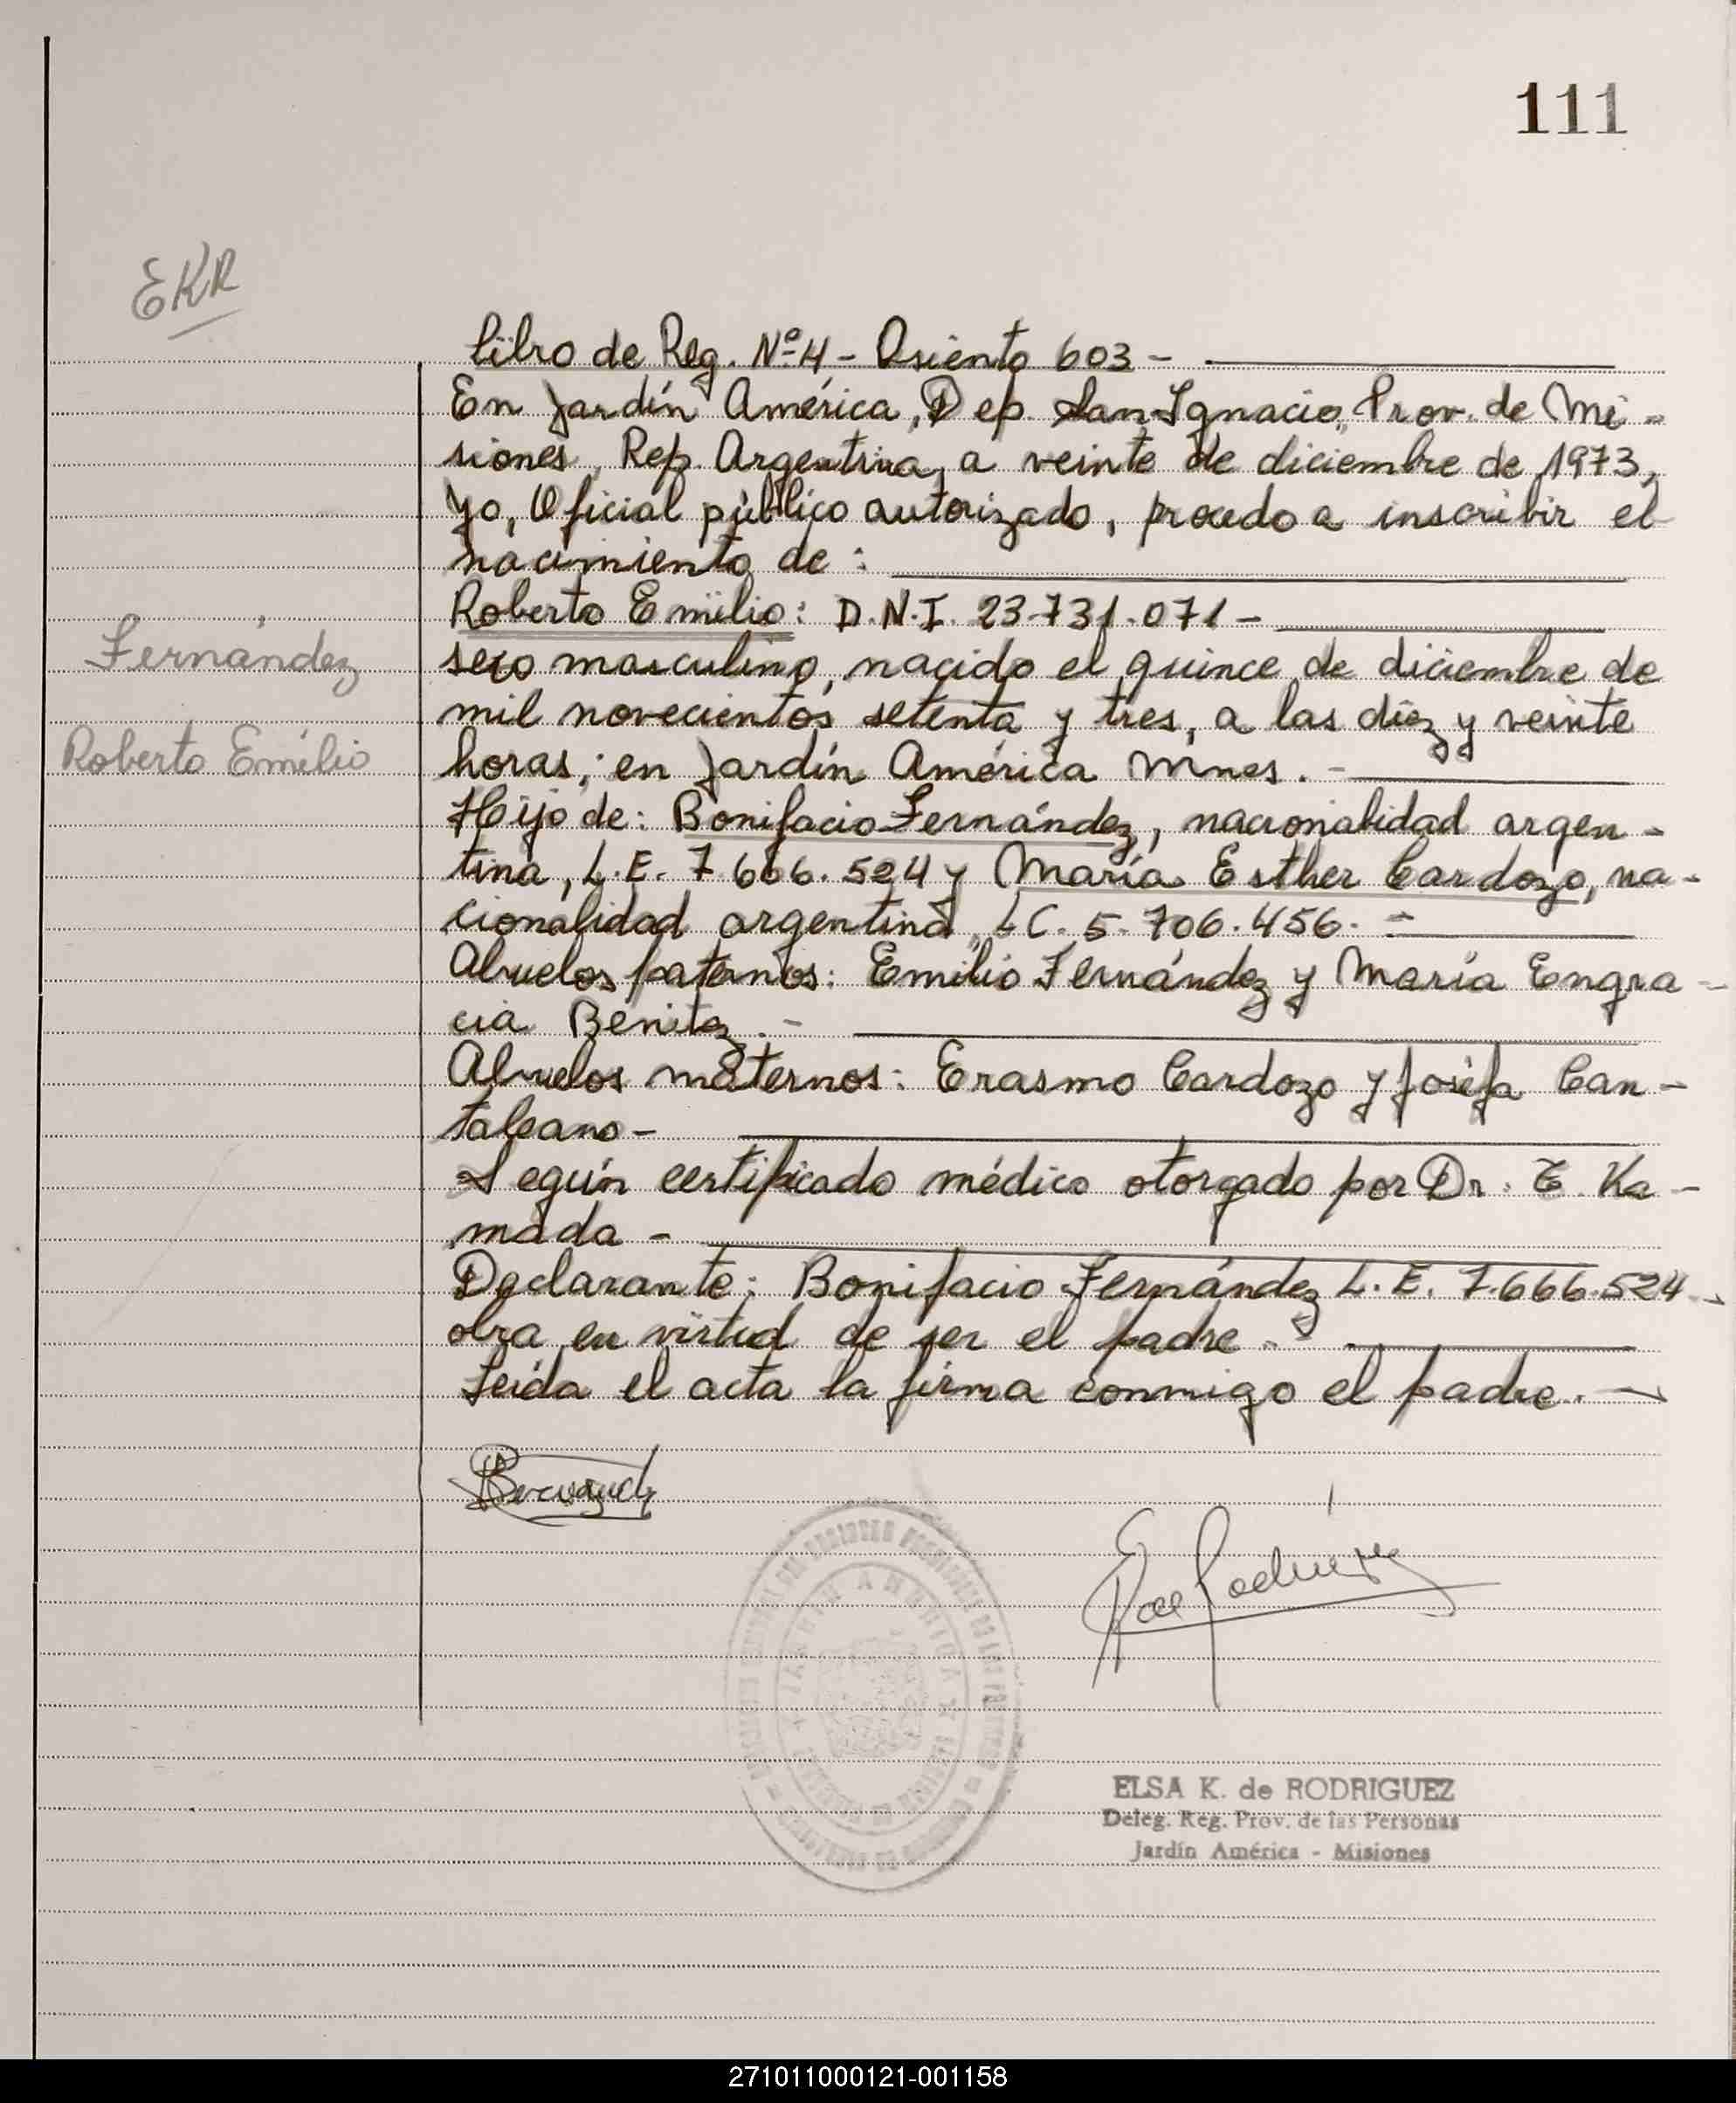 111
EKR
Libro de Reg. Nº 4 - Asiento 603 -
En Jardín América, Dep. San Ignacio, Prov. de Mi-
siones, Rep. Argentina, a veinte de diciembre de 1973,
yo, Oficial público autorizado, procedo a inscribir el
nacimiento de:
Roberto Emilio: D.N.I. 23.731.071 -
Fernández
sexo masculino, nacido el quince de diciembre de
mil novecientos setenta y tres, a las diez y veinte
Roberto Emilio
horas, en Jardín América Mnes. -
Hijo de: Bonifacio Fernández, nacionalidad argen-
tina, L.E. 7.666.524 y María Esther Cardozo, na-
cionalidad argentina, LC. 5.706.456. -
Abuelos paternos: Emilio Fernández y María Engra-
cia Benitez. -
Abuelos maternos: Erasmo Cardozo y Josefa Can-
taleano -
Según certificado médico otorgado por Dr. E. Ka-
mada -
Declarante: Bonifacio Fernández L.E. 7.666.524 -
obra en virtud de ser el padre. -
Leída el acta la firma conmigo el padre. -
ELSA K. de RODRIGUEZ
Deleg. Reg. Prov. de las Personas
Jardín América - Misiones
271011000121-001158